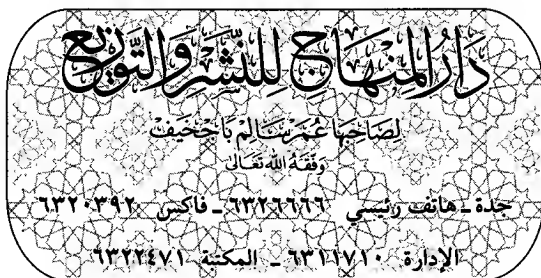 دَارُ المِنْهَاجِ لِلنَّشْرِ وَالتَّوْزِيعِ
لِصَاحِبِهَا عُمَر سَالِم بَاجْخَيف
وَفَّقَهُ اللهُ تَعَالَى
جدة - هاتف رئيسي ٦٣٢٦٦٦٦ - فاكس ٦٣٢٠٣٩٢
الإدارة ٦٣١١٧١٠ - المكتبة ٦٣٢٢٤٧١